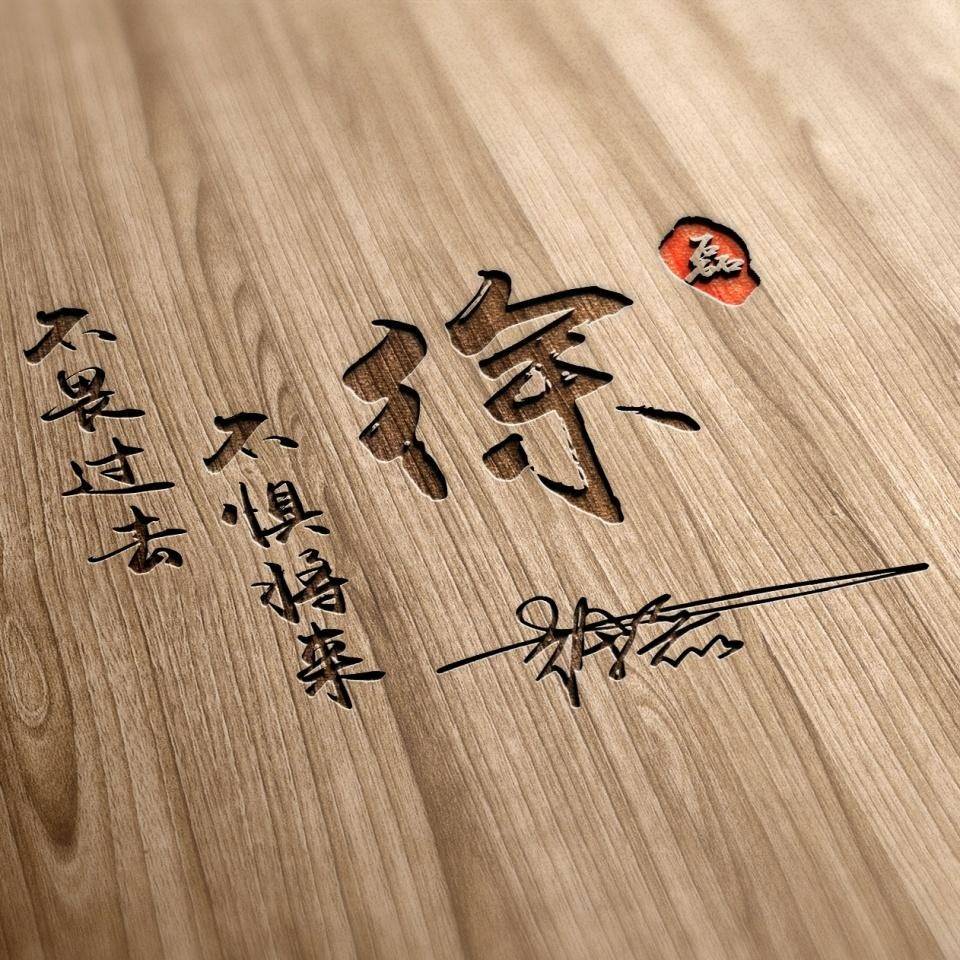 徐
磊
不畏过去
不惧将来